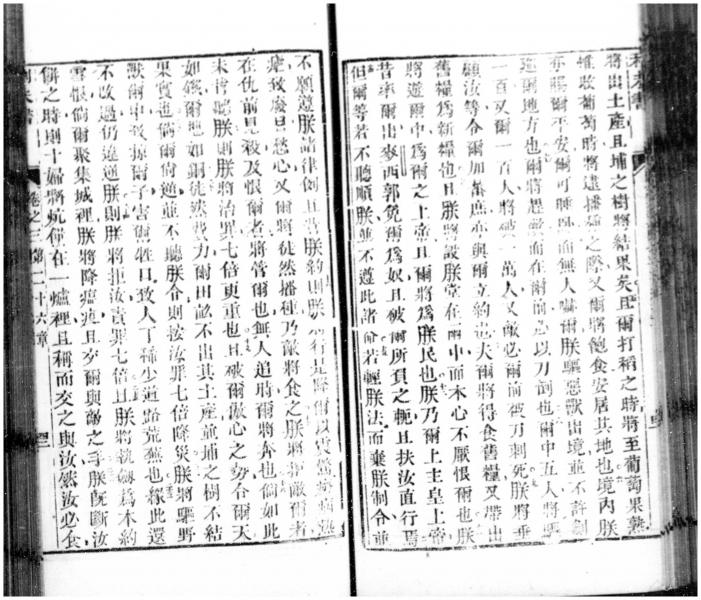 將出土產且埔之樹將結果矣且爾打稻之時將至葡萄果熟
惟收葡萄時將達播種之際又爾將飽食安居其地也境內朕
亦賜爾平安爾可睡臥而無人嚇爾朕驅惡獸出境並不許劍
進爾地方也爾將趕敵而在爾前必以刀剖也爾中五人將驅
一百又爾一百人將破一萬人又敵必爾前被刀刺死朕將垂
顧汝等令爾加蕃庶亦與爾立約也夫爾將得食舊糧又帶出
舊糧爲新糧也且朕將設朕堂在爾中而朕心不厭恨爾也朕
將遊爾中爲爾之上帝且爾將爲朕民也朕乃爾上主皇上帝
昔率爾出麥西郭免爾爲奴且破爾所負之軛且扶汝直行焉
但爾等若不聽順朕並不遵此諸命若輕朕法而棄朕制令並
不願遵朕諸律例且背朕約則朕亦行是降爾以癆病熱
瘧致廢目愁心又爾將徒然播種乃敵將食之朕將拒敵爾者
在仇前見殺及恨爾者將管爾也無人追時爾將奔也倘如此
未肯聽朕則朕將治罪七倍更重也且破爾傲心之勢令爾天
如鐵爾地如銅徒然費力爾田畝不出其土產並埔之樹不結
果實也倘爾尚逆並不聽朕令則按汝罪七倍降災朕將驅野
獸爾中致掠爾子害爾牲口致人丁稀少道路荒蕪也緣此還
不改過仍逆朕則朕將拒汝責罪七倍且朕將執劍爲朕約
雪恨倘爾聚集城裡朕將降瘟疫且交爾與敵之手朕旣斷汝
餅之時則十婦將炕餅在一爐裡且稱而交之與汝然汝必食
卷之三 第二十六章